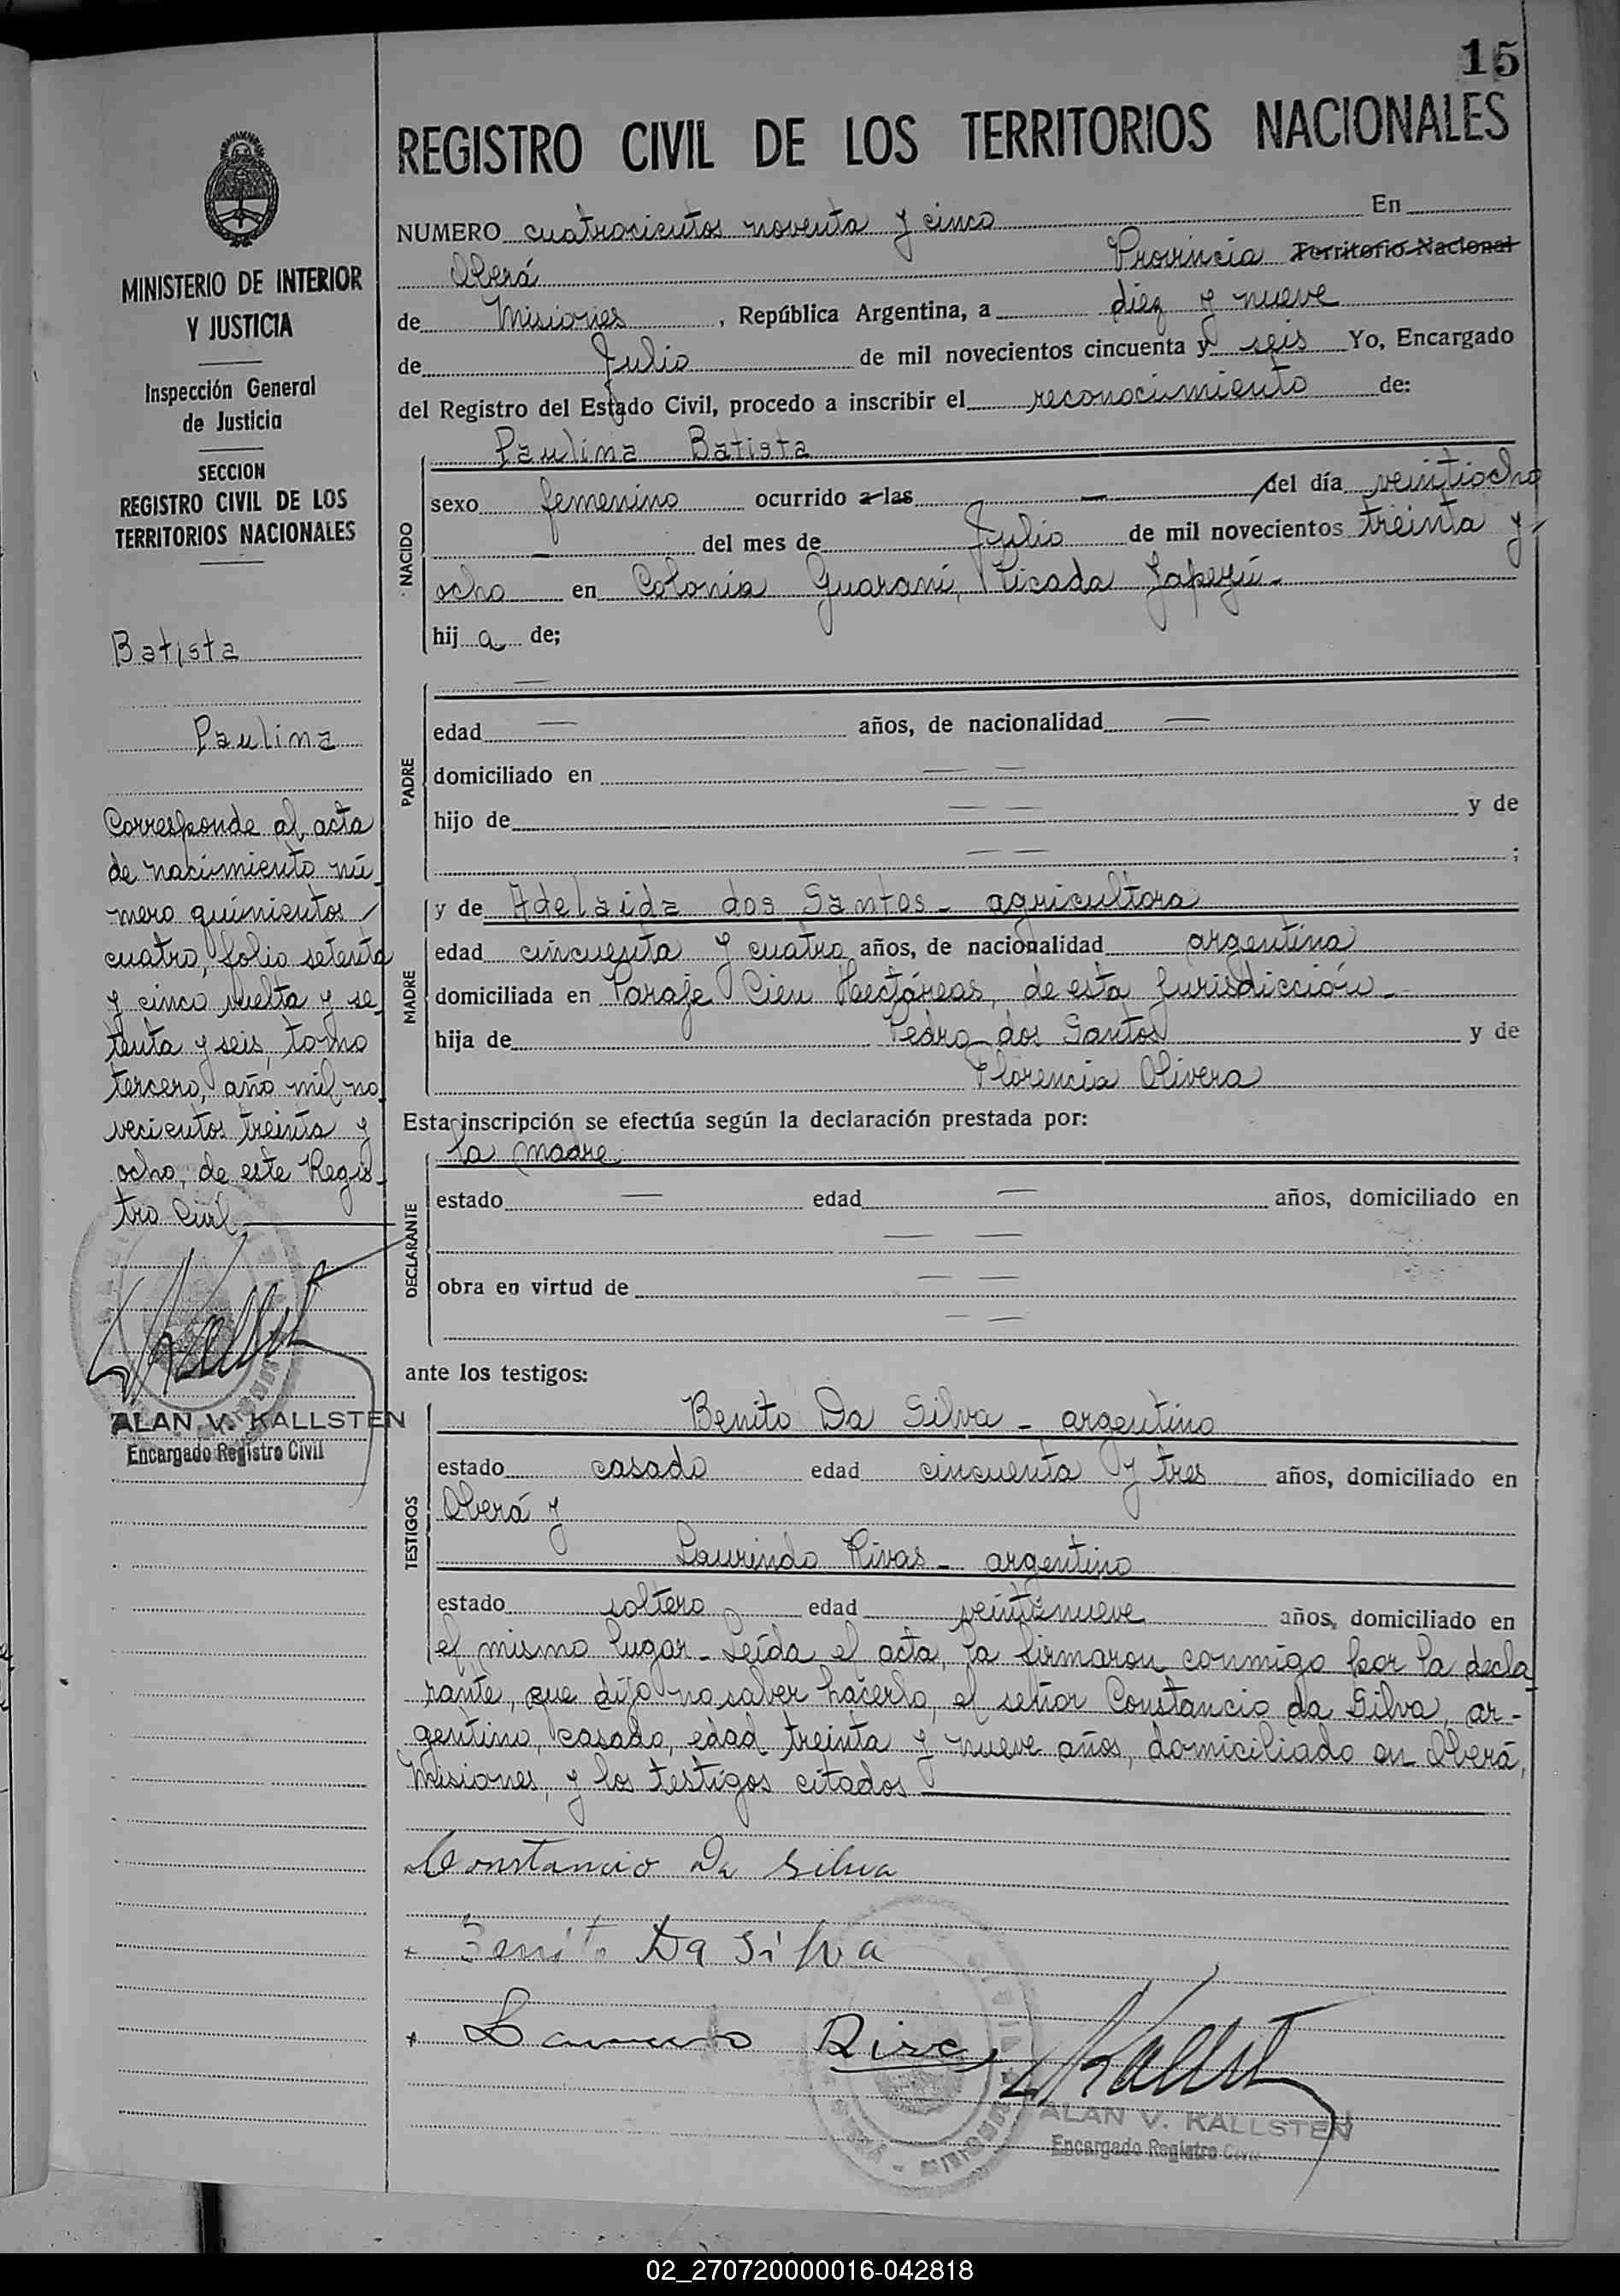 15
REGISTRO CIVIL DE LOS TERRITORIOS NACIONALES
MINISTERIO DE INTERIOR
Y JUSTICIA
Inspección General
de Justicia
SECCION
REGISTRO CIVIL DE LOS
TERRITORIOS NACIONALES
Batista
Paulina
Corresponde al acta
de nacimiento nú-
mero quinientos
cuatro, folio setenta
y cinco vuelta y se-
tenta y seis, tomo
tercero, año mil no-
vecientos treinta y
ocho, de este Regis-
tro Civil
ALAN V. KALLSTEN
Encargado Registro Civil
NUMERO cuatrocientos noventa y cinco En
Oberá Provincia Territorio Nacional
de Misiones, República Argentina, a diez y nueve
de Julio de mil novecientos cincuenta y seis Yo, Encargado
del Registro del Estado Civil, procedo a inscribir el reconocimiento de:
Paulina Batista
NACIDO
sexo femenino ocurrido a las — del día veintiocho
— del mes de Julio de mil novecientos treinta y
ocho en Colonia Guaraní, Picada Yapeyú-
hij a de;
PADRE
—
edad — años, de nacionalidad —
domiciliado en — —
hijo de — — y de
— — ;
MADRE
y de Adelaida dos Santos - agricultora
edad cincuenta y cuatro años, de nacionalidad argentina
domiciliada en Paraje Cien Hectáreas, de esta jurisdicción-
hija de Pedro dos Santos y de
Florencia Olivera
Esta inscripción se efectúa según la declaración prestada por:
DECLARANTE
la madre
estado — edad — años, domiciliado en
— —
obra en virtud de — —
— —
ante los testigos:
TESTIGOS
Benito Da Silva - argentino
estado casado edad cincuenta y tres años, domiciliado en
Oberá y
Laurindo Rivas - argentino
estado soltero edad veintinueve años, domiciliado en
el mismo lugar- Leída el acta, la firmaron conmigo por la decla-
rante, que dijo no saber hacerlo, el señor Constancio da Silva, ar-
gentino, casado, edad treinta y nueve años, domiciliado en Oberá,
Misiones, y los testigos citados
Constancio Da Silva
Benito Da Silva
ALAN V. KALLSTEN
Encargado Registro Civil
02_270720000016-042818